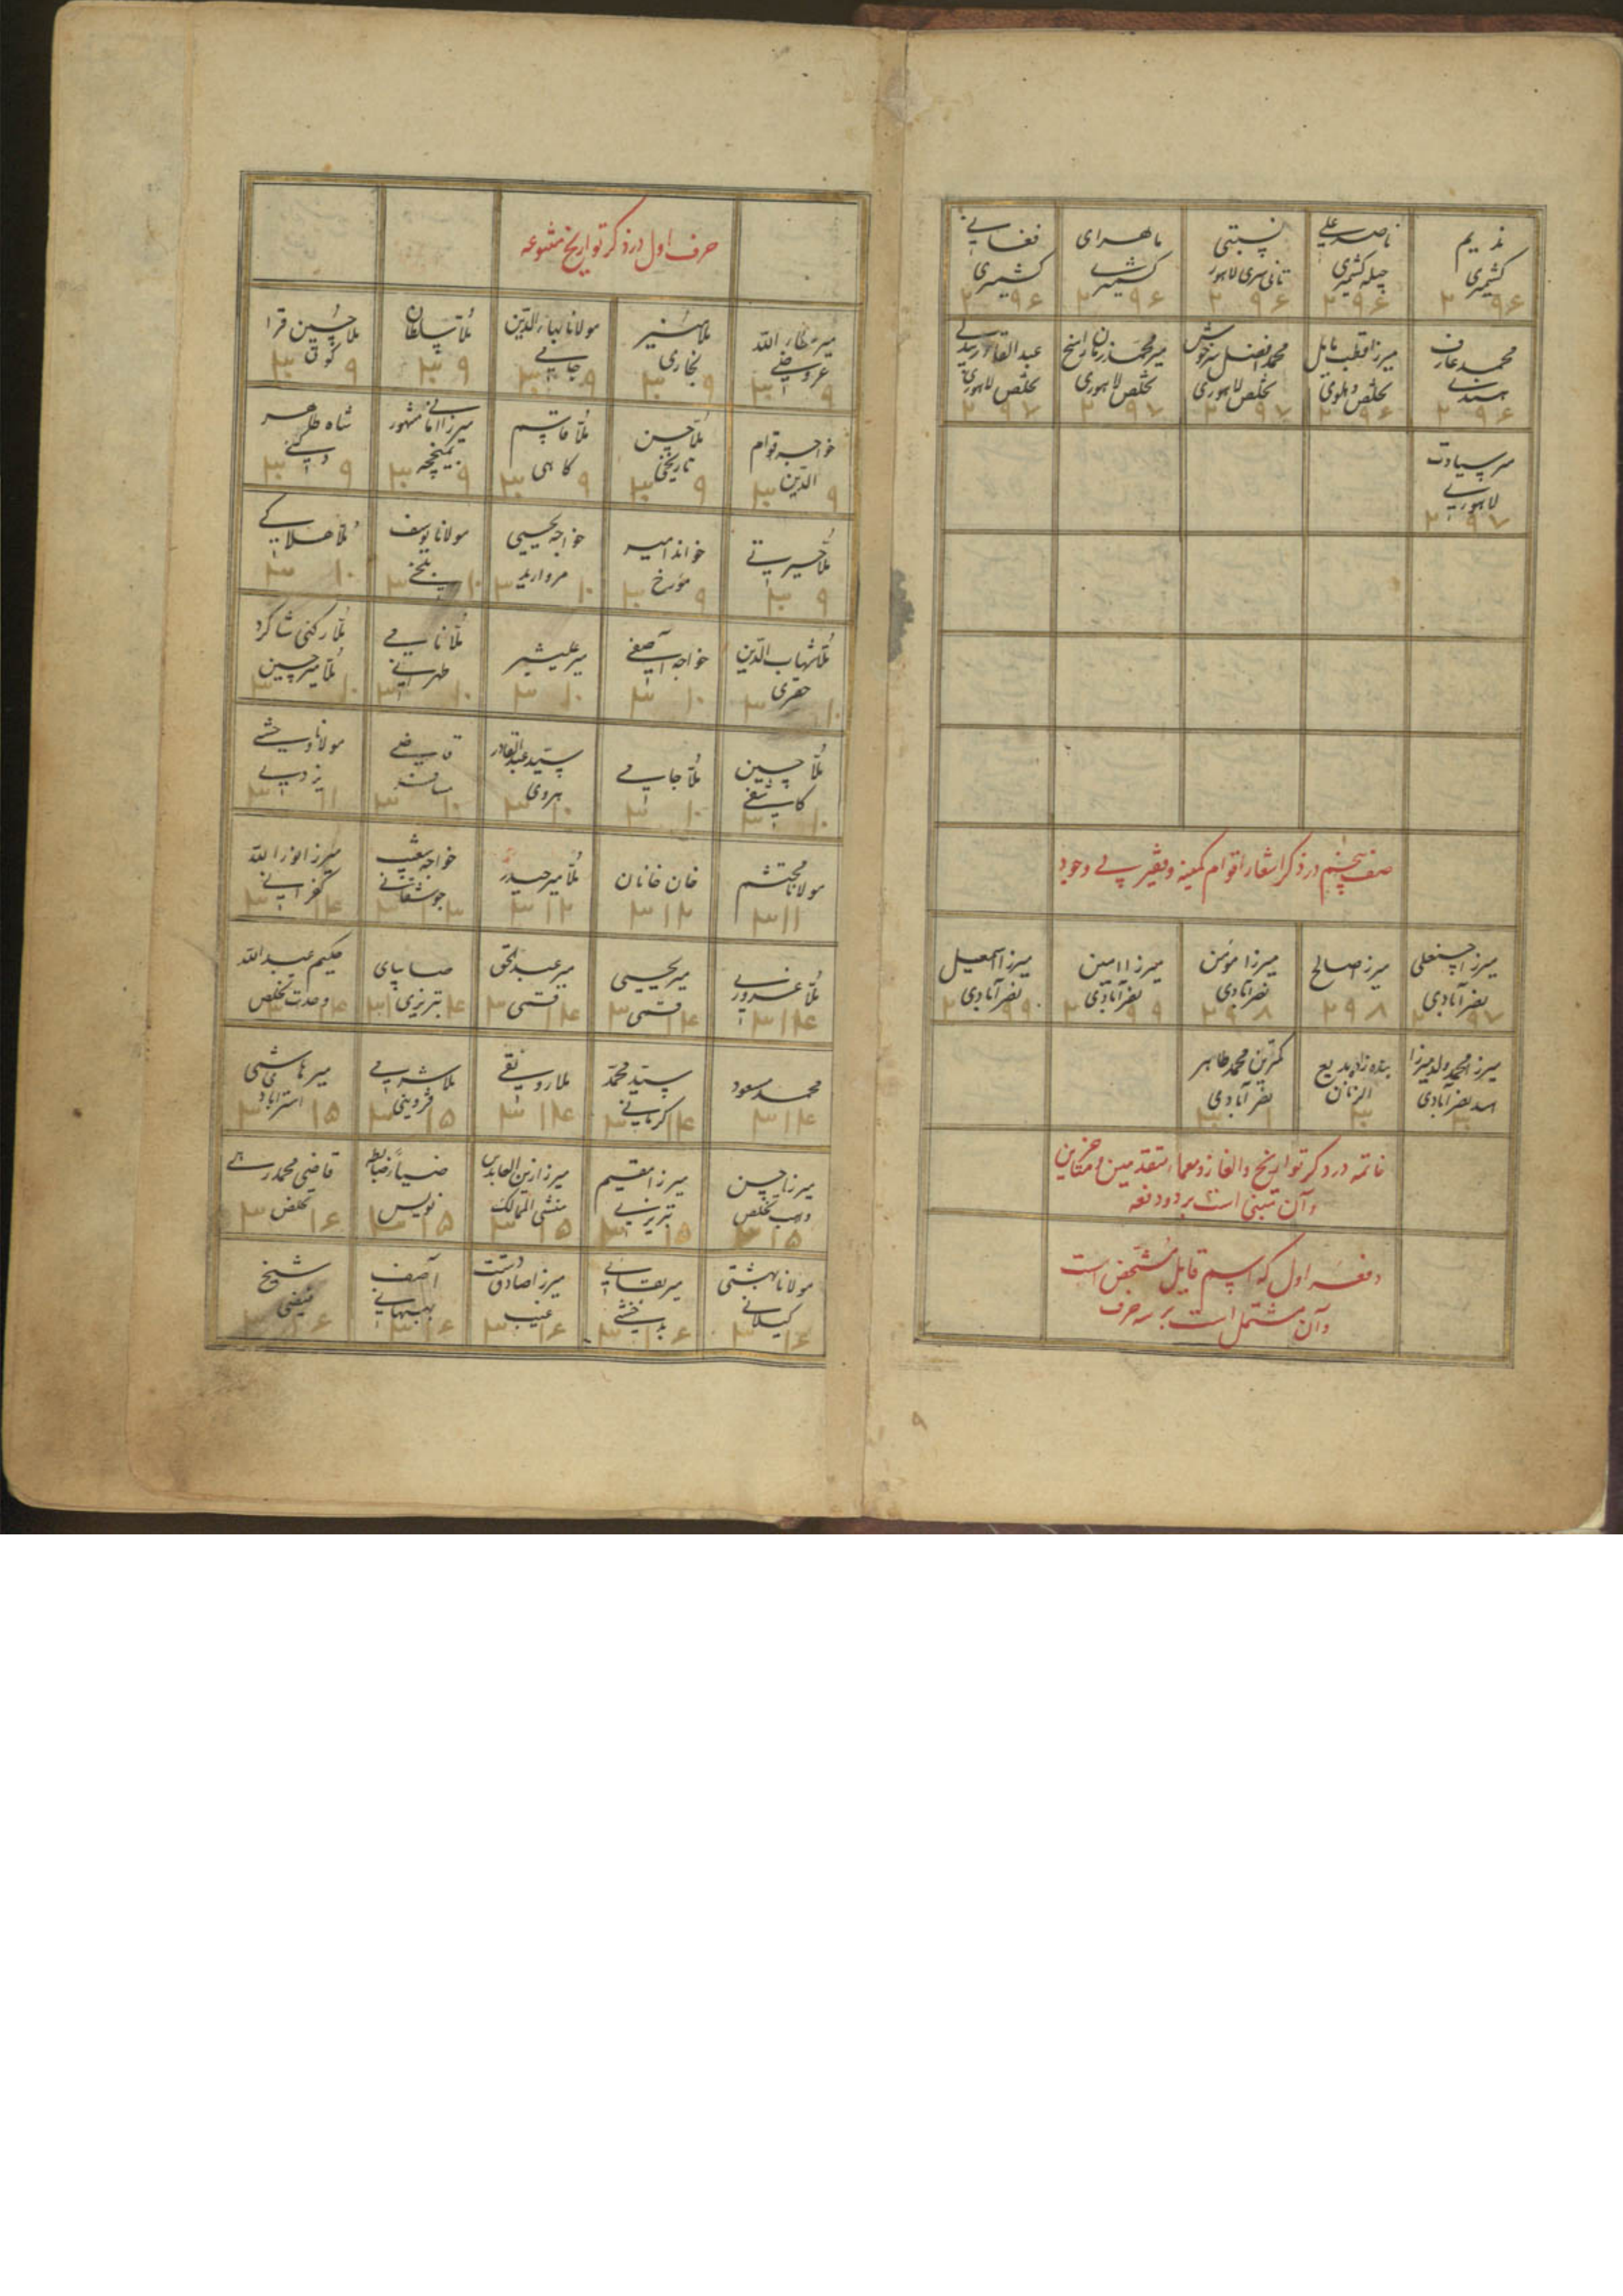 ندیم کشمیری ۲۹۶
ناصر علی چیله کشمیری ۲۹۶
نسبتی تانیسری لاهور ۲۹۶
ماهرای کشمیری ۲۹۶
فغانی کشمیری ۲۹۶
محمد عارف ۲۹۶
میرزا قطب مایل تخلص دهلوی ۲۹۶
محمد افضل سرخوش تخلص لاهوری ۲۹۷
میر محمد زمان راسخ تخلص لاهوری ۲۹۷
عبد القادر بیدلی تخلص لاهوری ۲۹۷
میر سیادت لاهوری ۲۹۷
صنف پنجم در ذکر اشعار اقوام کمینه و فقیر بی وجود
میرزا حسنعلی نصرآبادی ۲۹۷
میرزا صالح ۲۹۸
میرزا مؤمن نصرآبادی ۲۹۸
میرزا امین نصرآبادی ۲۹۹
میرزا اسمعیل نصرآبادی ۲۹۹
میرزا محمد ولد میرزا اسد نصرآبادی
بنده زاده بدیع الزمان
کمترین محمد طاهر نصرآبادی
خاتمه در ذکر تواریخ و الغاز و معماء متقدمین و متاخرین
و آن مبتنی است بر دو دفعه
دفعه اول که اسم قایل مشخص است
و آن مشتمل است بر سه حرف
حرف اول در ذکر تواریخ متنوعه
میر عطاء الله ۳۰۹
ملا منیر بخاری ۳۰۹
مولانا بهاء الدین جامی ۳۰۹
ملا سلطان ۳۰۹
ملا حسین قرا کوی ۳۰۹
خواجه قوام الدین ۳۰۹
ملا حسن تاریخی ۳۰۹
ملا قاسم کاهی ۳۰۹
میرزا امانی مشهور ۳۰۹
شاه طاهر دکنی ۳۰۹
ملا حیرتی ۳۰۹
خواند امیر مؤرخ ۳۰۹
خواجه یحیی مروارید ۳۱۰
مولانا یوسف بلخی ۳۱۰
ملا هلاکی ۳۱۰
ملا شهاب الدین حقیری ۳۱۰
خواجه آصفی ۳۱۰
میر علیشیر ۳۱۰
ملا نامی طهرانی ۳۱۰
ملا رکنی شاگرد ملا میر حسین ۳۱۰
ملا حسین کاشفی ۳۱۰
ملا جامی ۳۱۰
سید عبد القادر هروی ۳۱۰
قاضی ۳۱۰
مولانا وحشی یزدی ۳۱۱
مولانا محتشم ۳۱۱
خان خانان ۳۱۲
ملا میر حیدر ۳۱۲
خواجه شعیب جوشقانی ۳۱۳
میرزا نور الله کفرانی ۳۱۴
ملا غروری ۳۱۴
میر یحیی قمی ۳۱۴
میر عبد الحق قمی ۳۱۴
تبریزی ۳۱۴
حکیم عبد الله وحدت تخلص ۳۱۴
محمد مسعود ۳۱۴
سید محمد کرمانی ۳۱۴
ملا رونقی ۳۱۴
ملا شرمی قزوینی ۳۱۵
میر هاشمی استرابادی ۳۱۵
میرزا حسن واهب تخلص ۳۱۵
میرزا مقیم تبریزی ۳۱۵
میرزا زین العابدین منشی الممالک ۳۱۵
ضیاء ضابطه نویس ۳۱۵
قاضی محمد تخلص ۳۱۶
مولانا بهشتی گیلانی ۳۱۶
میر بقائی بدخشی ۳۱۶
میرزا صادق دست غیب ۳۱۶
آصف بهبهانی ۳۱۶
شیخ فیضی ۳۱۶